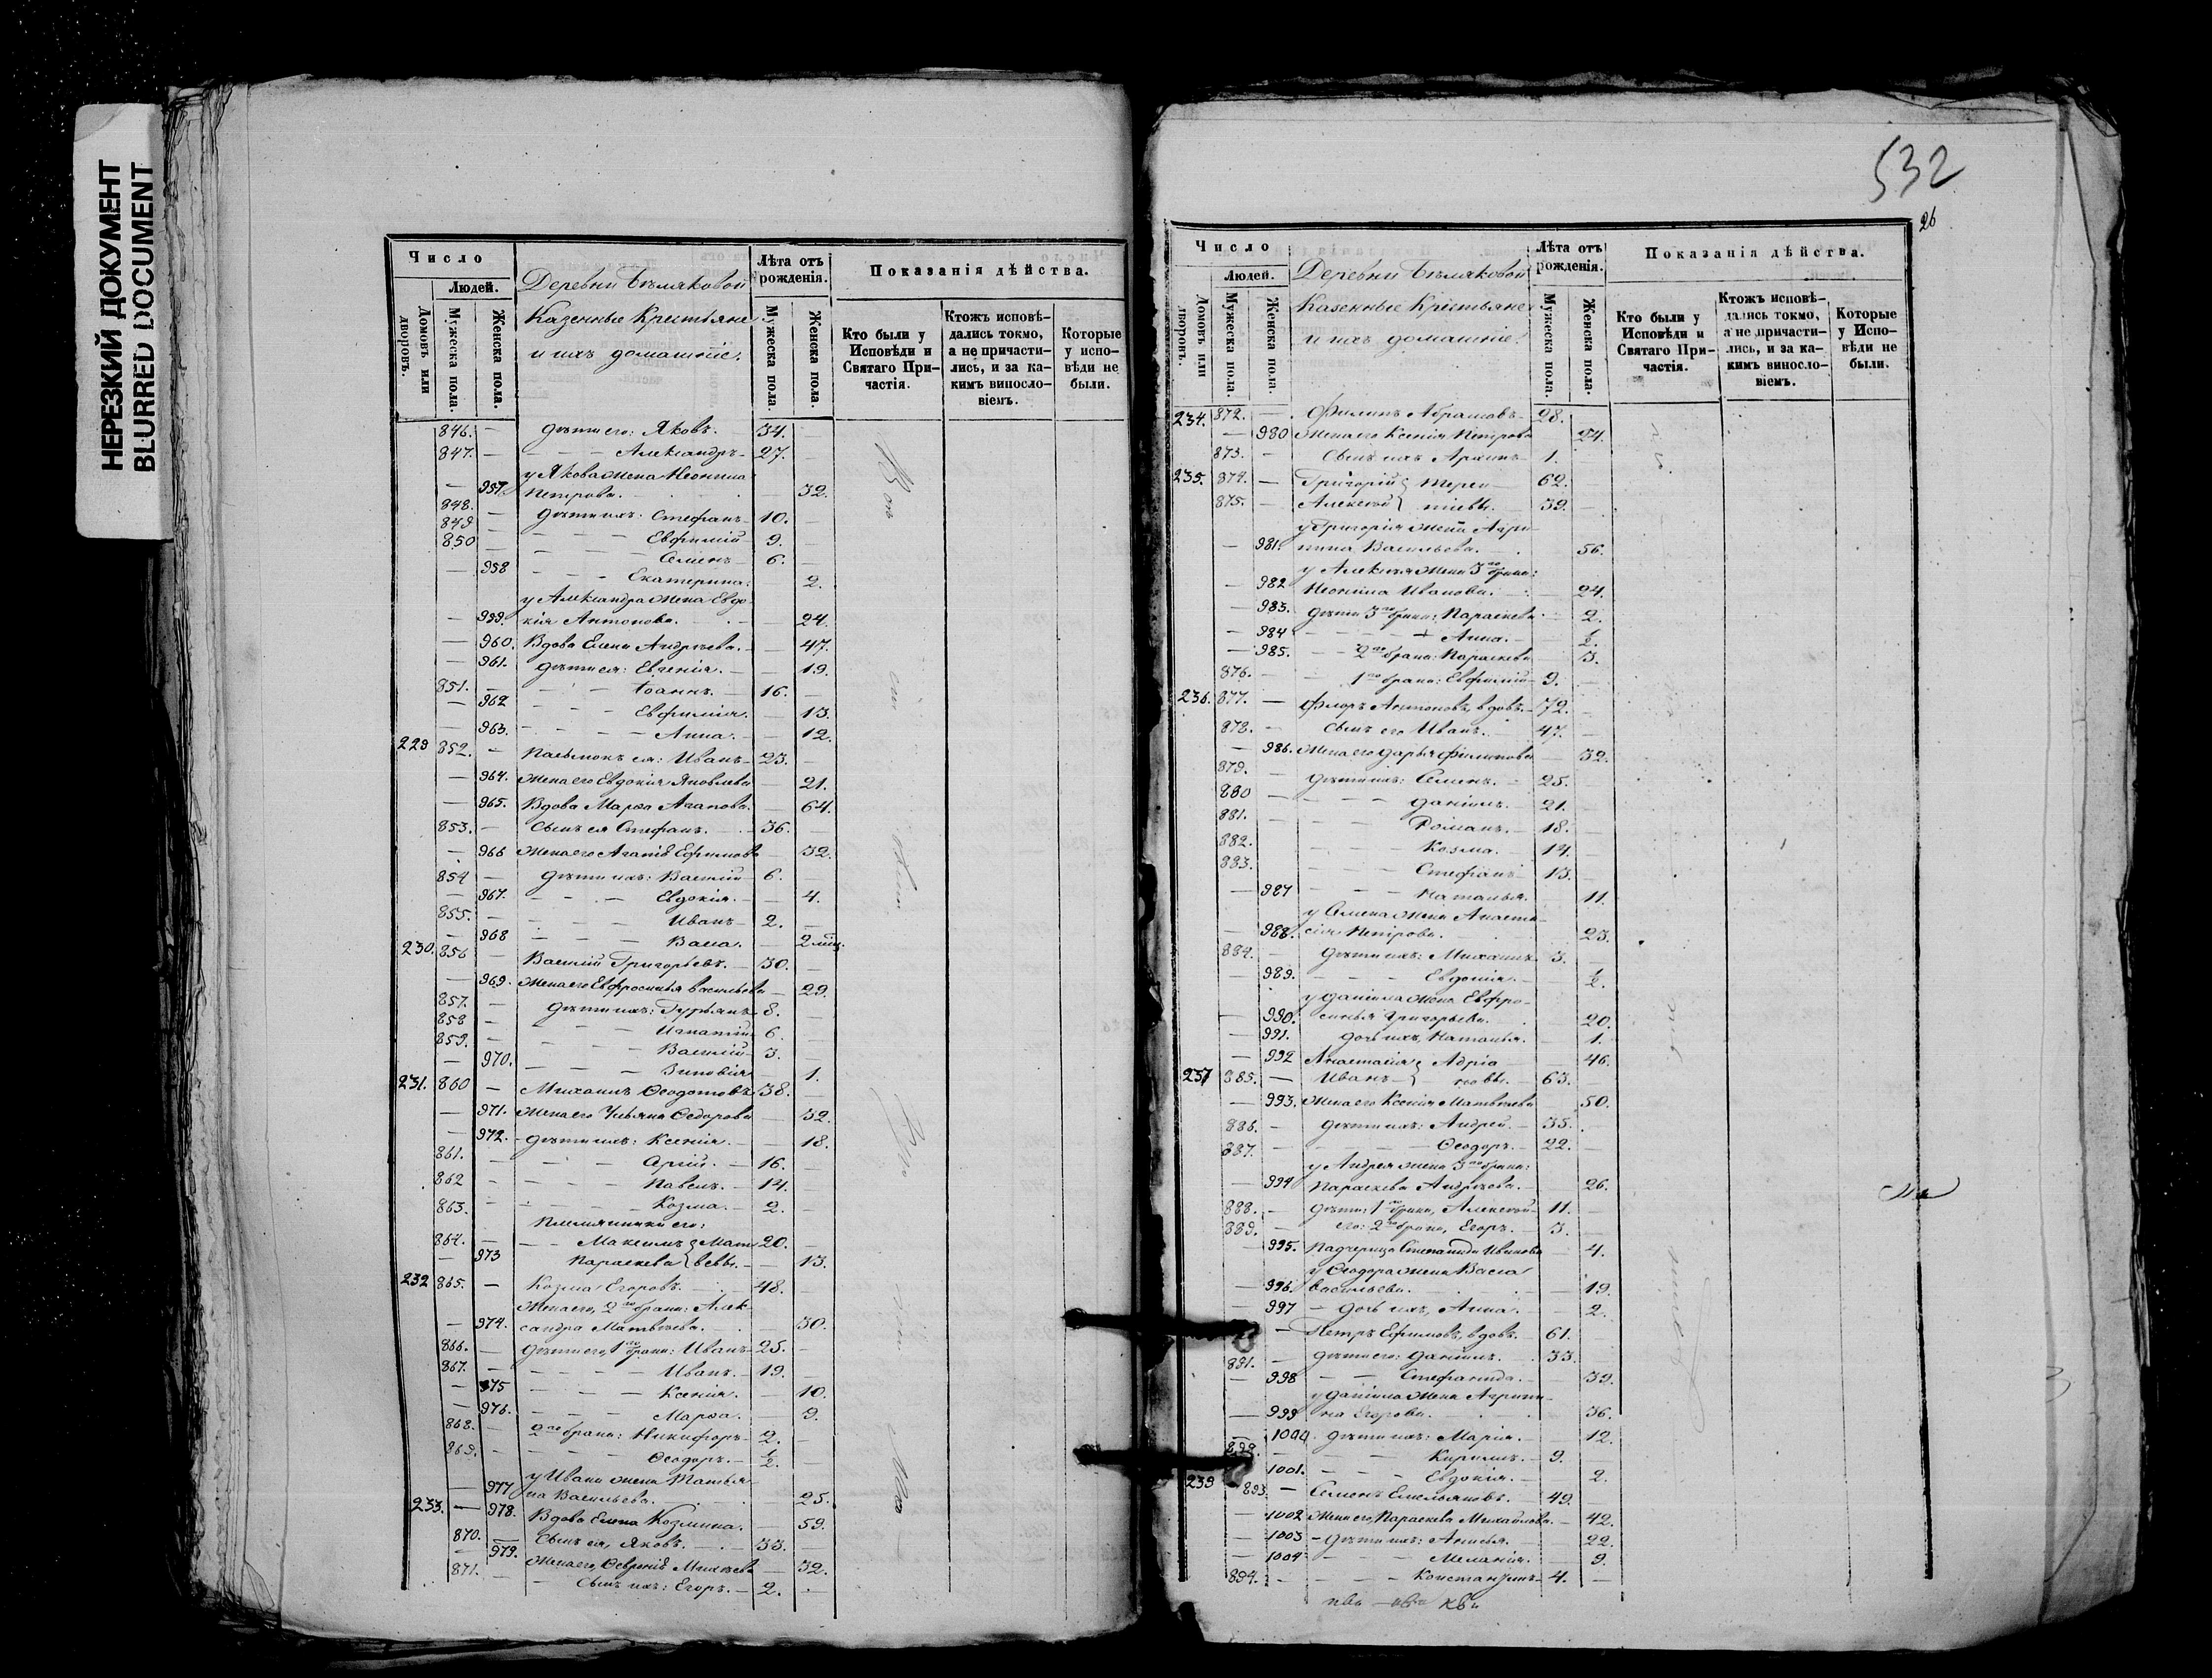 НЕРЕЗКИЙ ДОКУМЕНТ
BLURRED DOCUMENT
Число
Людей.
Домовъ или дворовъ.
Мужеска пола.
Женска пола.
Деревни Бѣляковой
Казенные Крестьяне
и ихъ домашніе.
Лѣта отъ рожденія.
Мужеска пола.
Женска пола.
Показанія дѣйства.
Кто были у Исповѣди и Святаго При-частія.
Ктожъ исповѣ-дались токмо, а не причасти-лись, и за ка-кимъ винословіемъ.
Которые у испо-вѣди не были.
846. — дѣти его: Яковъ. 34.
847. — Александръ 27.
у Якова жена Неонила
— 957. Петрова. 32.
848. — дѣти ихъ: Стефанъ 10.
849 — Евфимій 9.
850 — Семенъ 6.
— 958 Екатерина: 2.
у Александра жена Евдо-
— 959. кія Антонова. 24.
— 960. Вдова Елена Андреева. 47.
— 961. дѣти ея: Евгенія. 19.
851. — Іоаннъ. 16.
— 962 Евфимія. 13.
— 963. Анна. 12.
229 852. — Пасынокъ ея: Иванъ 23.
— 964. Жена его Евдокія Яковлева 21.
— 965. Вдова Марѳа Агапова. 64.
853. — Сынъ ея Стефанъ. 36.
— 966 Жена его Агапія Ефимова 32.
854 — дѣти ихъ: Василій 6.
— 967. Евдокія. 4.
855. — Иванъ 2.
— 968 Васса. 2 мѣс.
230. 856 — Василій Григорьевъ. 30.
— 969. Жена его Евфросинья Васильева 29.
857. — дѣти ихъ: Гурьянъ 8.
858 — Игнатій 6.
859. — Василій 3.
— 970. Зиновія 1.
231. 860 — Михаилъ Ѳеодотовъ 38.
— 971. Жена его Ульяна Ѳедорова 32.
— 972. дѣти ихъ: Ксенія. 18.
861. — 16.
862 — Павелъ. 14.
863. — Козма. 2.
Племянники его:
864. — Максимъ } Мат 20.
— 973 Параскева } вевы. 13.
232 865. — Козма Егоровъ. 48.
Жена его, 2го брака: Алек-
— 974. сандра Матвѣева. 30.
866. — дѣти его, 1го брака: Иванъ 25.
867. — Иванъ. 19.
— 975 Ксенія. 10.
— 976. Марѳа. 9.
868. — 2го брака: Никифоръ 2.
869. — Ѳеодоръ. ½.
у Ивана жена Татья-
— 977 на Васильева. 25.
233. — 978. Вдова Елена Козмина. 59.
870. — Сынъ ея, Яковъ. 33.
— 979. Жена его, Ѳевронія Михѣева 32.
871. — Сынъ ихъ: Егоръ. 2.
532
26
Число
Людей.
Домовъ или дворовъ.
Мужеска пола.
Женска пола.
Деревни Бѣляковой
Казенные Крестьяне
и ихъ домашніе.
Лѣта отъ рожденія.
Мужеска пола.
Женска пола.
Показанія дѣйства.
Кто были у Исповѣди и Святаго При-частія.
Ктожъ исповѣ-дались токмо, а не причасти-лись, и за ка-кимъ винословіемъ.
Которые у Испо-вѣди не были.
234. 872. — Филипъ Абрамовъ 28.
— 980 Жена его Ксенія Петрова 24.
873. — Сынъ ихъ Архипъ 1.
235. 874. — Григорій } Терен 62.
875. — Алексей } тіевы. 39.
у Григорія жена Агри-
— 981. пина Васильева. 56.
у Алексея жена 3го брака:
— 982 Неонила Иванова. 24.
— 983. дѣти 3го брака: Параскева 2.
— 984 Анна. ½.
— 985. 2го брака: Параскева 3.
876. — 1го брака: Евфимій 9.
236. 877. — Флоръ Антоновъ, вдовъ. 72.
878. — Сынъ его Иванъ. 47.
— 986. Жена его Дарья Филипова 52.
879. — дѣти ихъ: Семенъ. 25.
880 — Даніилъ. 21.
881. — Романъ. 18.
882. — Козма. 14.
883. — Стефанъ 13.
— 987 Наталья. 11.
у Семена жена Анаста-
— 988. сія Петрова. 23.
884. — дѣти ихъ: Михаилъ 3.
— 989. Евдокія. ½.
у Даніила жена Евфро-
— 990. синья Григорьева. 20.
— 991. дочь ихъ, Наталья. 1.
— 992 Анастасія } Адріа 46.
237 885. — Иванъ } новы. 63.
— 993. Жена его Ксенія Матвѣева 50.
886. — дѣти ихъ: Андрей. 35.
887. — Ѳеодоръ. 22.
у Андрея жена 3го брака:
— 994 Параскева Андреева. 26.
888. — дѣти: 1го брака, Алексей 11.
889. — его: 2го брака, Егоръ. 3.
— 995. Падчерица Степанида Иванова 4.
у Ѳеодора жена Васса
— 996. Васильева. 19.
— 997 дочь ихъ, Анна. 2.
— Петръ Ефимовъ, вдовъ. 61.
891. — дѣти его: Даніилъ. 33.
— 998 Стефанида. 39.
у Даніила жена Агрипи-
— 999 на Егорова. 36.
— 1000 дѣти ихъ: Марія. 12.
892. — Кирилъ. 9.
1001. Евдокія. 2.
239 893. — Семенъ Емельяновъ. 49.
— 1002 Жена его, Параскева Михайлова. 42.
— 1003 дѣти ихъ: Анисья. 22.
— 1004 Меланія. 9.
894. — Константинъ 4.